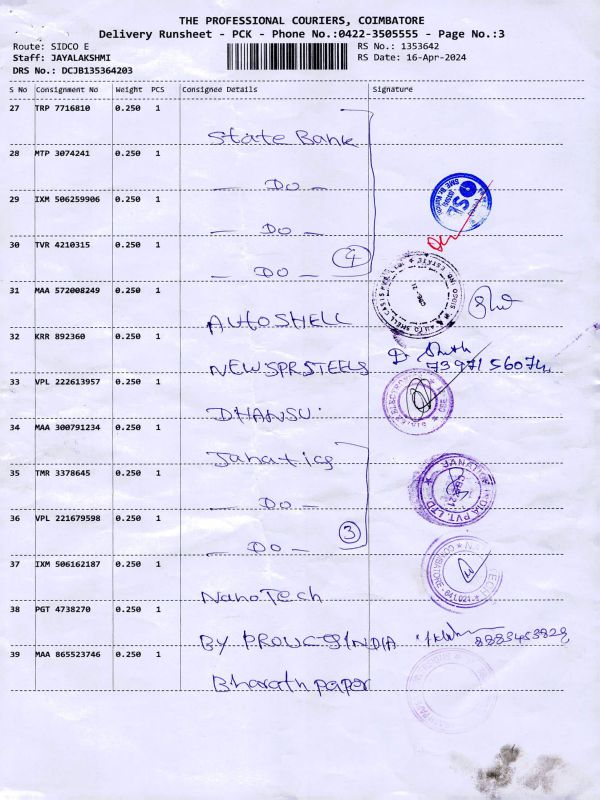 THE PROFESSIONAL COURIERS, COIMBATORE
Delivery Runsheet - PCK - Phone No.:0422-3505555 - Page No.:3
Route: SIDCO E
RS No.: 1353642
Staff: JAYALAKSHMI
RS Date: 16-Apr-2024
DRS No.: DCJB135364203
S No Consignment No Weight PCS Consignee Details Signature
27 TRP 7716810 0.250 1
State Bank
28 MTP 3074241 0.250 1
— Do —
29 IXM 506259906 0.250 1
— Do —
30 TVR 4210315 0.250 1
— Do — 4
31 MAA 572008249 0.250 1
AUTOSHELL
32 KRR 892360 0.250 1
NEWSPRSTEELS
33 VPL 222613957 0.250 1
DHANSU:
34 MAA 300791234 0.250 1
Janatics
35 TMR 3378645 0.250 1
— Do —
36 VPL 221679598 0.250 1
— Do — 3
37 IXM 506162187 0.250 1
NanoTech
38 PGT 4738270 0.250 1
BY PROUCGSINDIA
39 MAA 865523746 0.250 1
Bharath paper